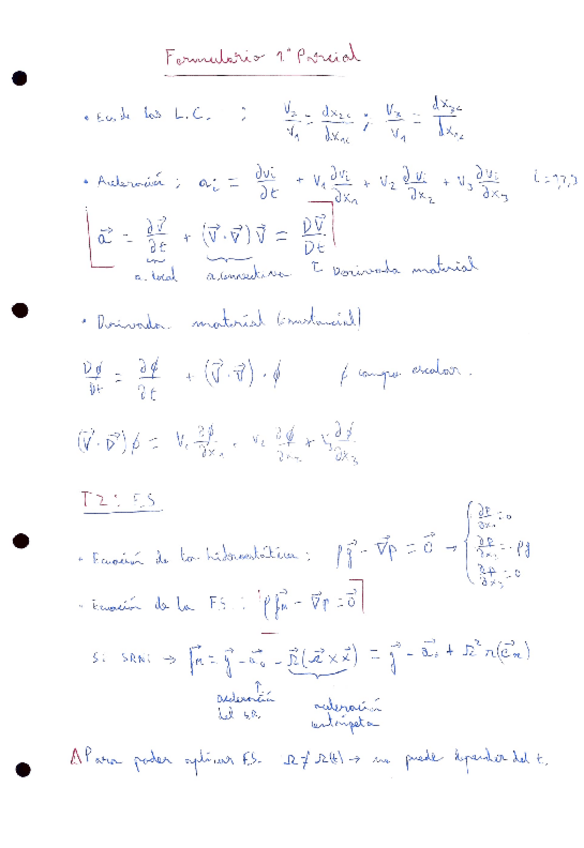 Formulario 1º Parcial
• Ec. de las L.C. : V₂/V₁ = dx₂c/dx₁c ; V₃/V₁ = dx₃c/dx₁c
• Aceleración : aᵢ = ∂vᵢ/∂t + V₁ ∂vᵢ/∂x₁ + V₂ ∂vᵢ/∂x₂ + V₃ ∂vᵢ/∂x₃ i=1,2,3
a⃗ = ∂v⃗/∂t + (v⃗·∇⃗)v⃗ = Dv⃗/Dt
a. local a. convectiva Derivada material
• Derivada material (sustancial)
Dϕ/Dt = ∂ϕ/∂t + (v⃗·∇⃗)·ϕ ϕ campo escalar.
(v⃗·∇⃗)ϕ = V₁ ∂ϕ/∂x₁ + V₂ ∂ϕ/∂x₂ + V₃ ∂ϕ/∂x₃
T2: F.S
- Ecuación de la hidrostática : ρg⃗ - ∇⃗p = 0⃗ → { ∂p/∂x₁ = 0
∂p/∂x₂ = -ρg
∂p/∂x₃ = 0
- Ecuación de la FS : ρf⃗m - ∇⃗p = 0⃗
Si SRNi → f⃗m = g⃗ - a⃗₀ - Ω⃗(Ω⃗ × x⃗) = g⃗ - a⃗₀ + Ω² r(e⃗r)
aceleración del S.R.
aceleración centrípeta
Δ Para poder aplicar F.S. Ω ≠ Ω(t) → no puede depender del t.